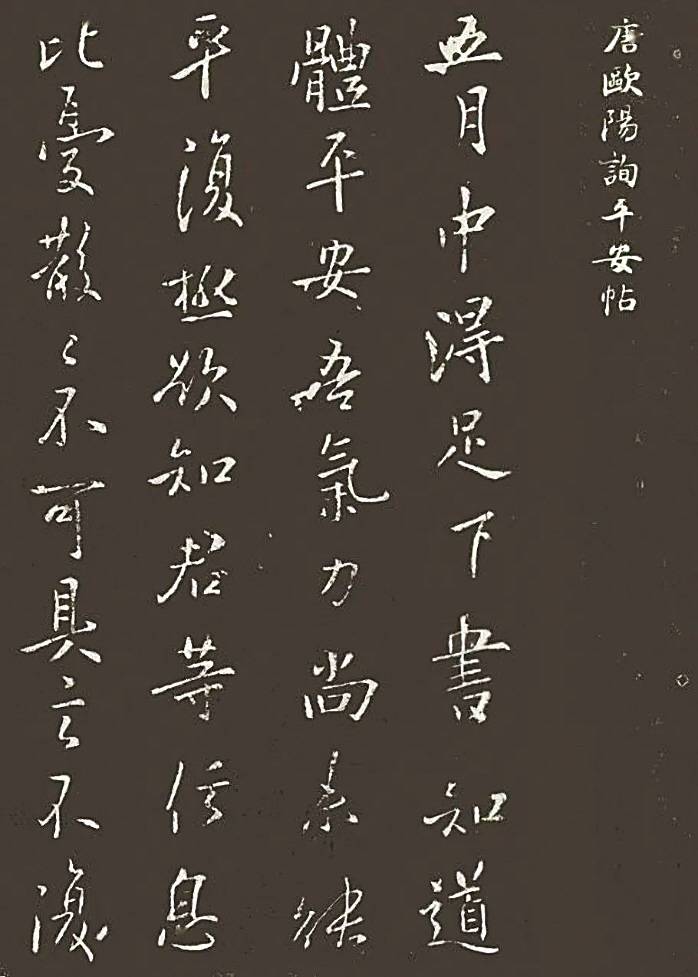 唐歐陽詢平安帖
五月中得足下書知道
體平安吾氣力尚未
平復極欲知君等信息
比憂散々不可具言不復